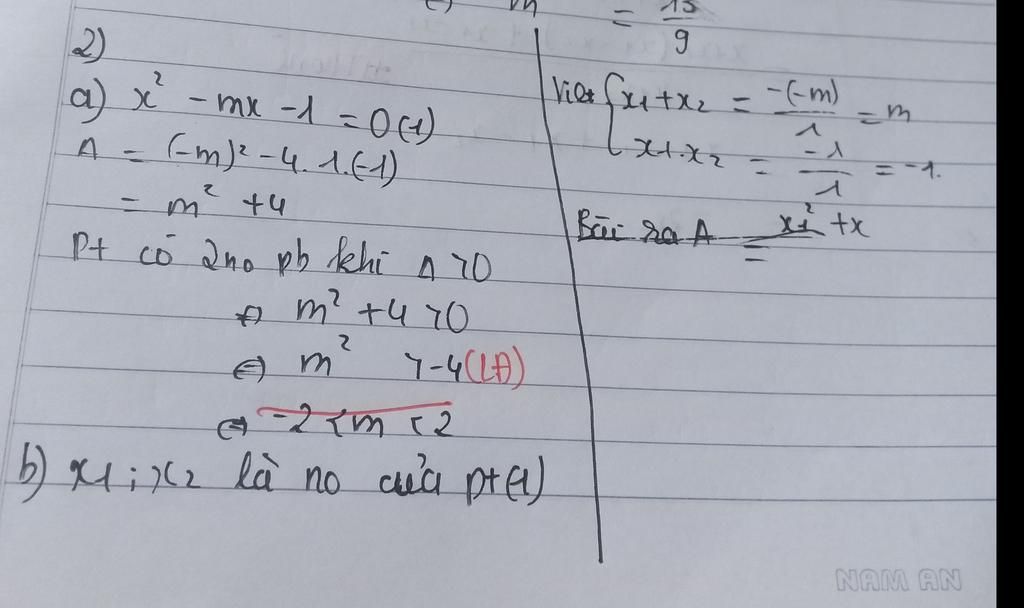 m = 13/9
2)
a) x² - mx - 1 = 0 (1)
Δ = (-m)² - 4.1.(-1)
= m² + 4
Pt có 2no pb khi Δ > 0
⇔ m² + 4 > 0
⇔ m² > -4 (LĐ)
⇔ -2 < m < 2
b) x1 ; x2 là no của pt (1)
Viet { x1 + x2 = -(-m)/1 = m
x1.x2 = -1/1 = -1.
Bài ra A = x1² + x
NAM AN